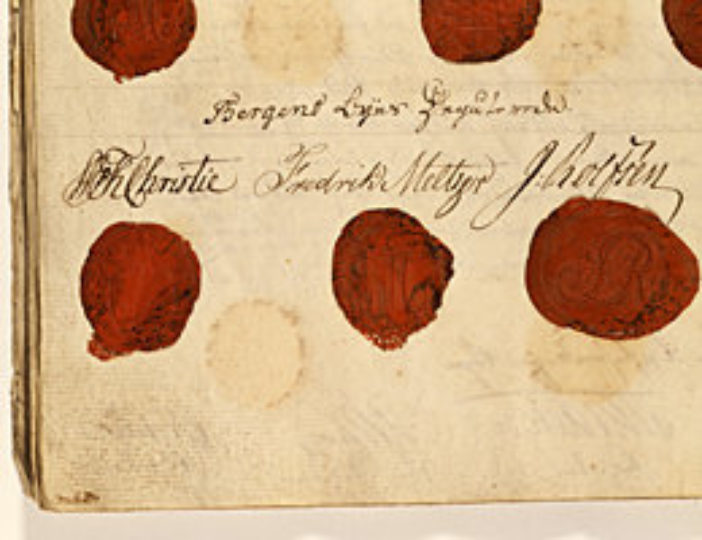 Bergens Byes Deputerede
WFKChristie Fredrik Meltzer J. Rolfsen
JR